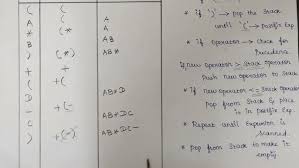 ( ( 
A ( A
* (* A
B (* AB
) AB*
+ + AB*
( +(
D +( AB*D
C AB*DC
) +(-) AB*DC-
* if ')' → pop the Stack
until '(' → postfix Exp.
* if Operator → Check for
Precedence
if new Operator > Stack Operator
Push new Operator to Stack
* if New Operator <= Stack Operator
Pop from Stack & place
is in postfix Exp.
* Repeat until Expression is
Scanned.
* Pop from Stack to make it
empty.